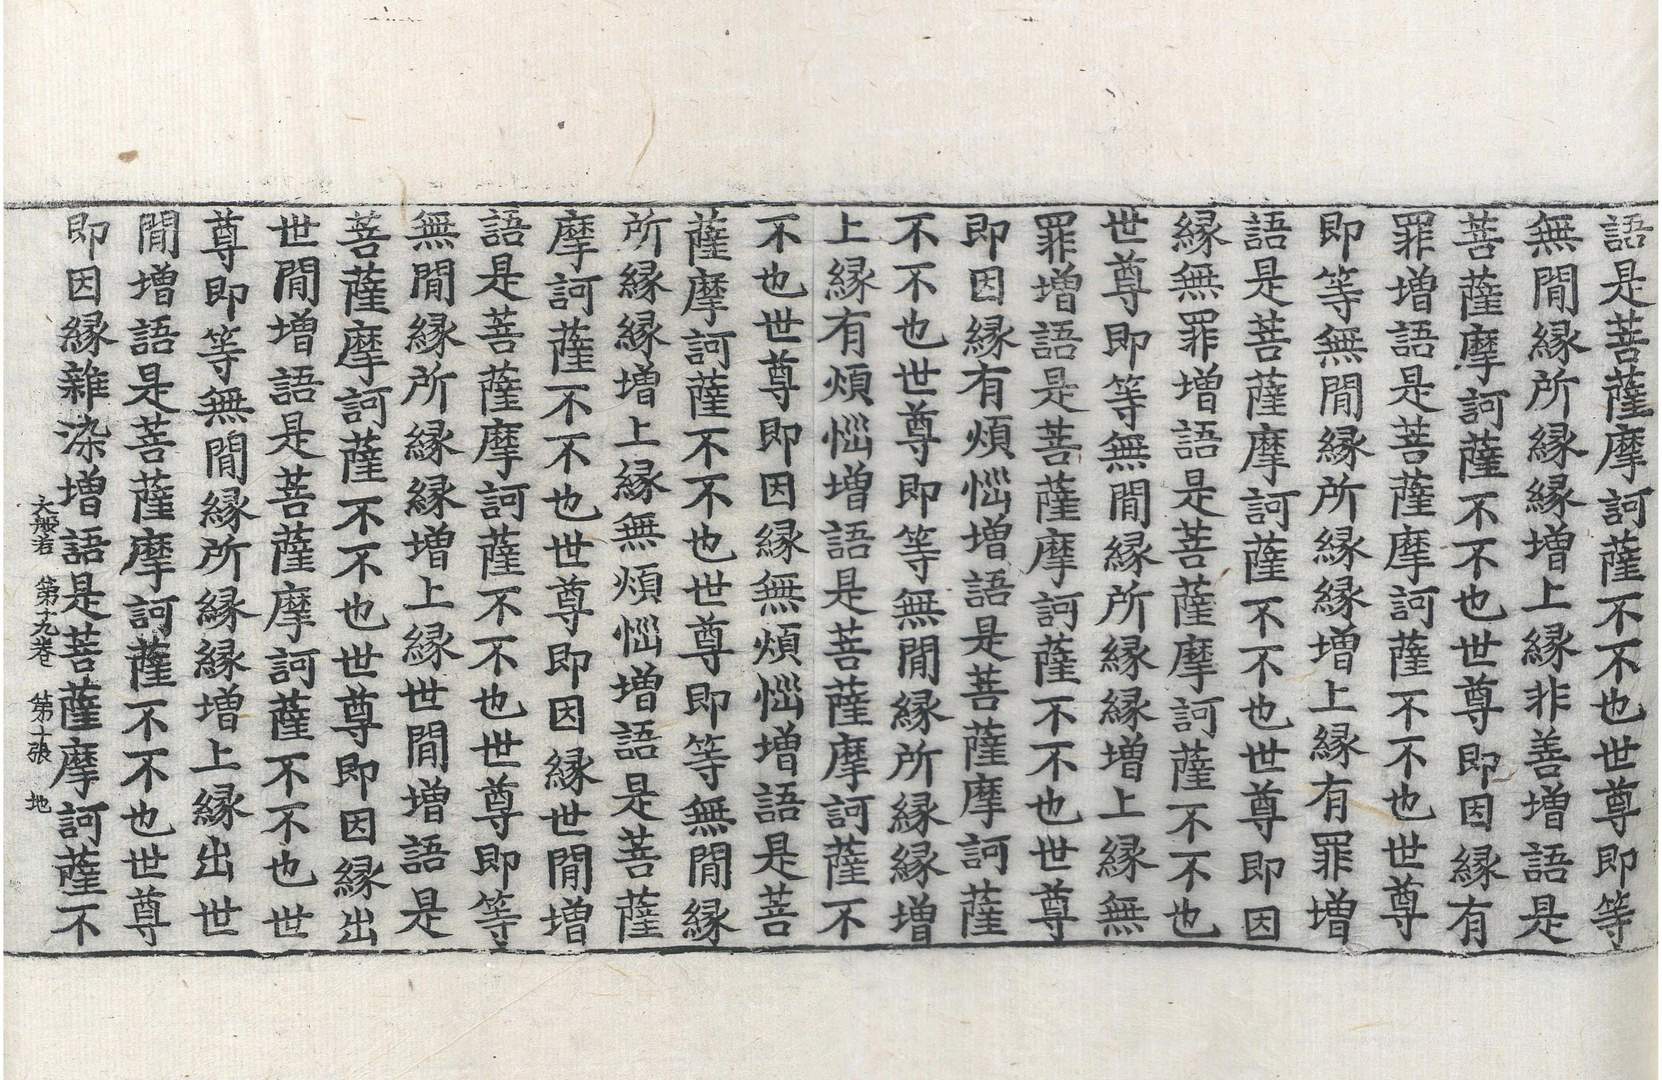 語是菩薩摩訶薩不不也世尊即等
無閒縁所縁縁增上縁非善增語是
菩薩摩訶薩不不也世尊即因縁有
罪增語是菩薩摩訶薩不不也世尊
即等無閒縁所縁縁增上縁有罪增
語是菩薩摩訶薩不不也世尊即因
縁無罪增語是菩薩摩訶薩不不也
世尊即等無閒縁所縁縁增上縁無
罪增語是菩薩摩訶薩不不也世尊
即因縁有煩惱增語是菩薩摩訶薩
不不也世尊即等無閒縁所縁縁增
上縁有煩惱增語是菩薩摩訶薩不
不也世尊即因縁無煩惱增語是菩
薩摩訶薩不不也世尊即等無閒縁
所縁縁增上縁無煩惱增語是菩薩
摩訶薩不不也世尊即因縁世閒增
語是菩薩摩訶薩不不也世尊即等
無閒縁所縁縁增上縁世閒增語是
菩薩摩訶薩不不也世尊即因縁出
世閒增語是菩薩摩訶薩不不也世
尊即等無閒縁所縁縁增上縁出世
閒增語是菩薩摩訶薩不不也世尊
即因縁雜染增語是菩薩摩訶薩不
大般若 第十九卷 第十張 地